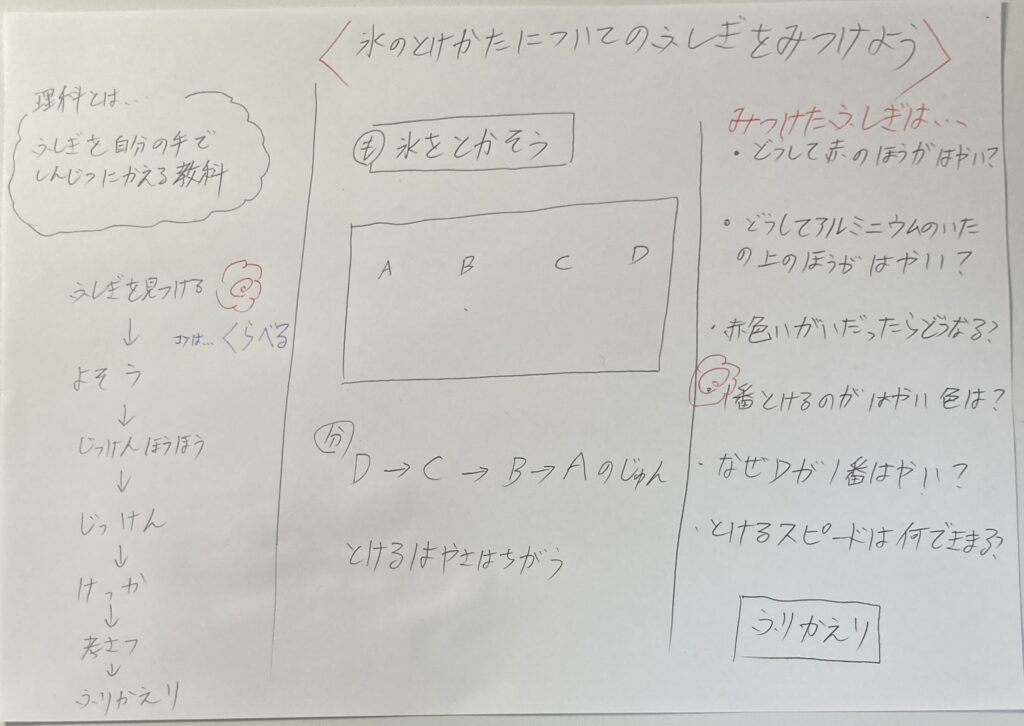 〈氷のとけかたについてのふしぎをみつけよう〉
理科とは...
ふしぎを自分の手で
しんじつにかえる教科
ふしぎを見つける
コツは...くらべる
↓
よそう
↓
じっけんほうほう
↓
じっけん
↓
けっか
↓
考さつ
↓
ふりかえり
も 氷をとかそう
A B C D
分
D→C→B→Aのじゅん
とけるはやさはちがう
みつけたふしぎは...
・どうして赤のほうがはやい?
・どうしてアルミニウムのいた
の上のほうがはやい?
・赤色いがいだったらどうなる?
1番とけるのがはやい色は?
・なぜDが1番はやい?
・とけるスピードは何できまる?
ふりかえり